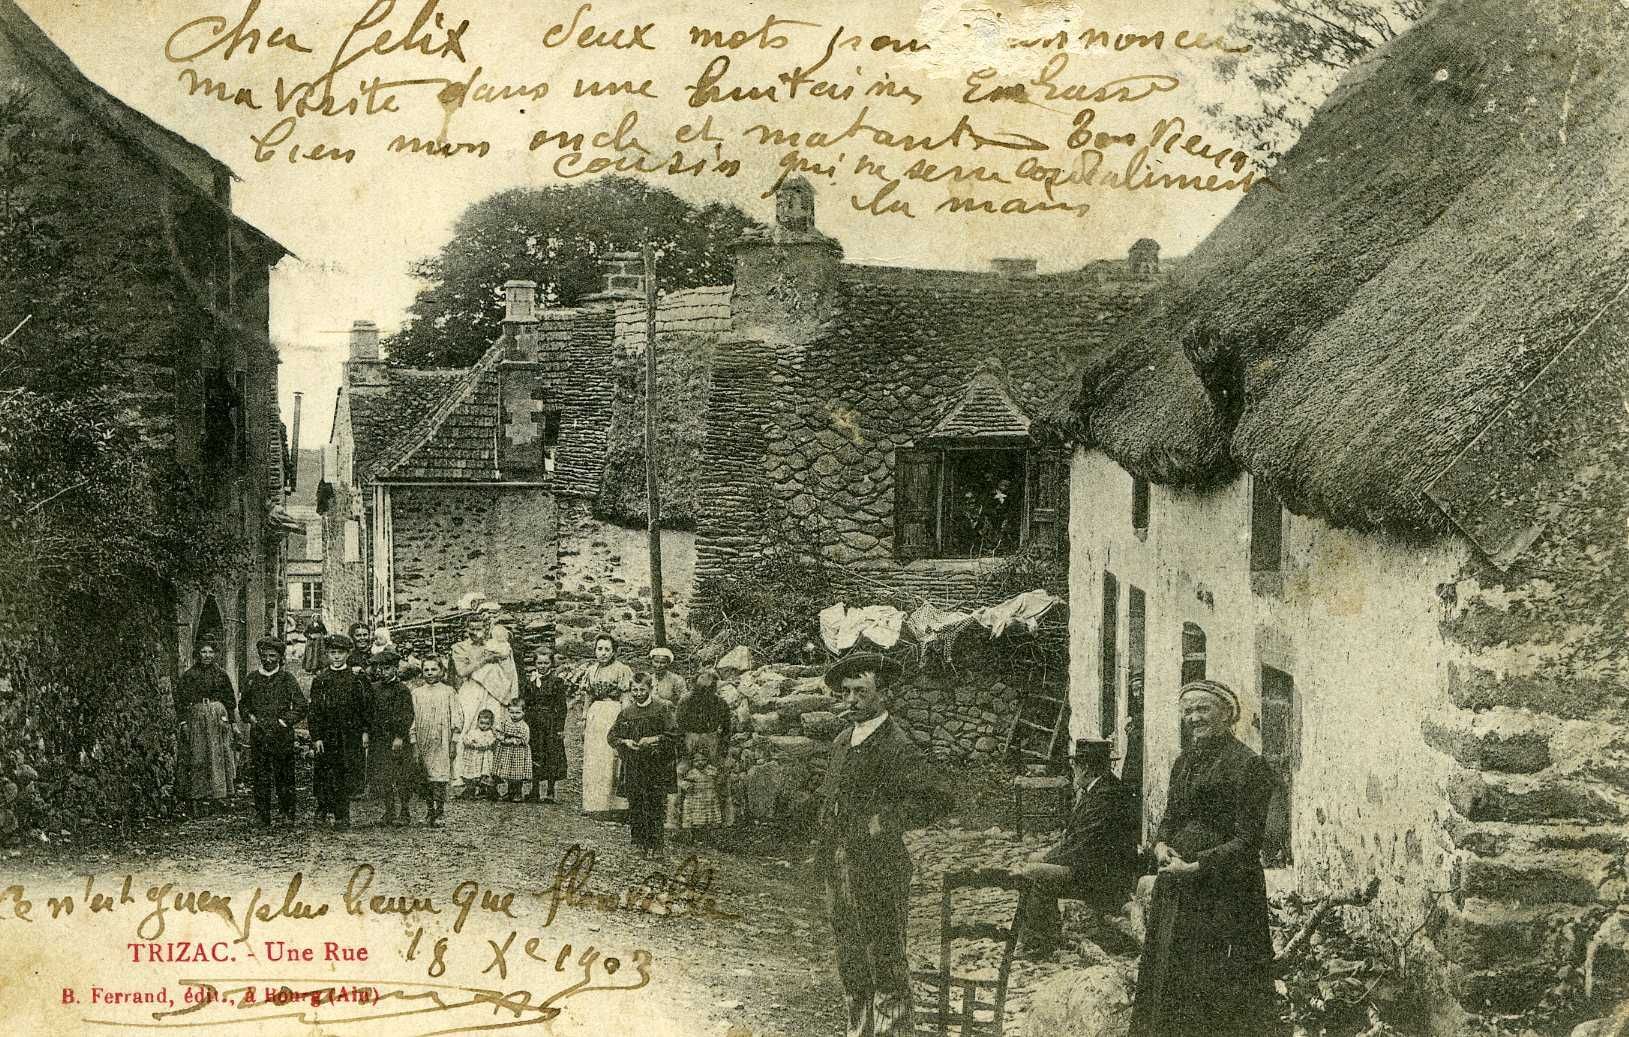 Cher felix deux mots pour annoncer
ma visite dans une huitaine Embrasse
bien mon oncle et matante Ton vieux
cousin qui te serre cordialement
la main
Ce n'est guere plus beau que
18 Xe 1903
TRIZAC. - Une Rue
B. Ferrand, édit., à Bourg (Ain)